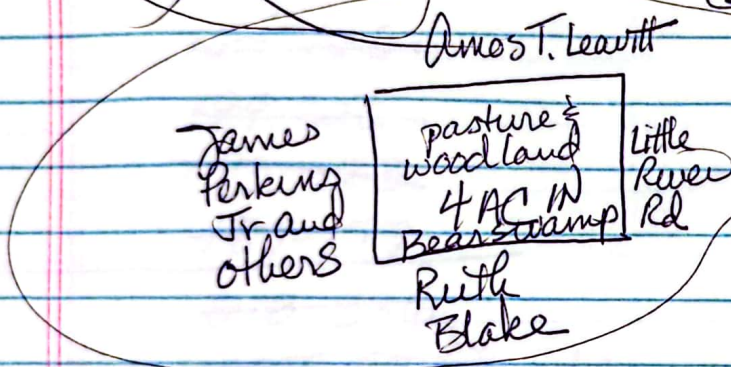 Amos T. Leavitt
James
Perkins
Jr and
others
pasture &
woodland
4 AC IN
Bearswamp
Little
River
Rd
Ruth
Blake